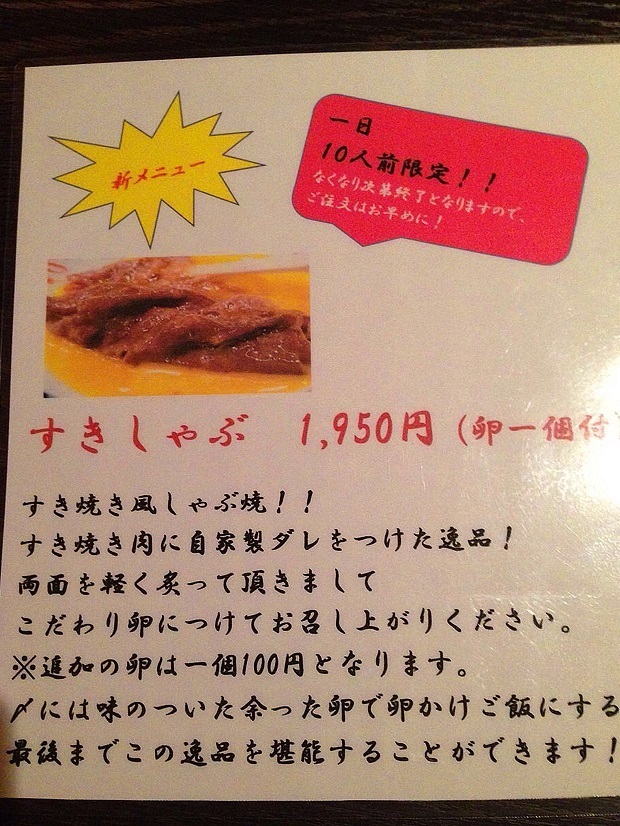 新メニュー
一日
10人前限定！！
なくなり次第終了となりますので、
ご注文はお早めに！
すきしゃぶ 1,950円（卵一個付）
すき焼き風しゃぶ焼！！
すき焼き肉に自家製ダレをつけた逸品！
両面を軽く炙って頂きまして
こだわり卵につけてお召し上がりください。
※追加の卵は一個100円となります。
〆には味のついた余った卵で卵かけご飯にする
最後までこの逸品を堪能することができます！